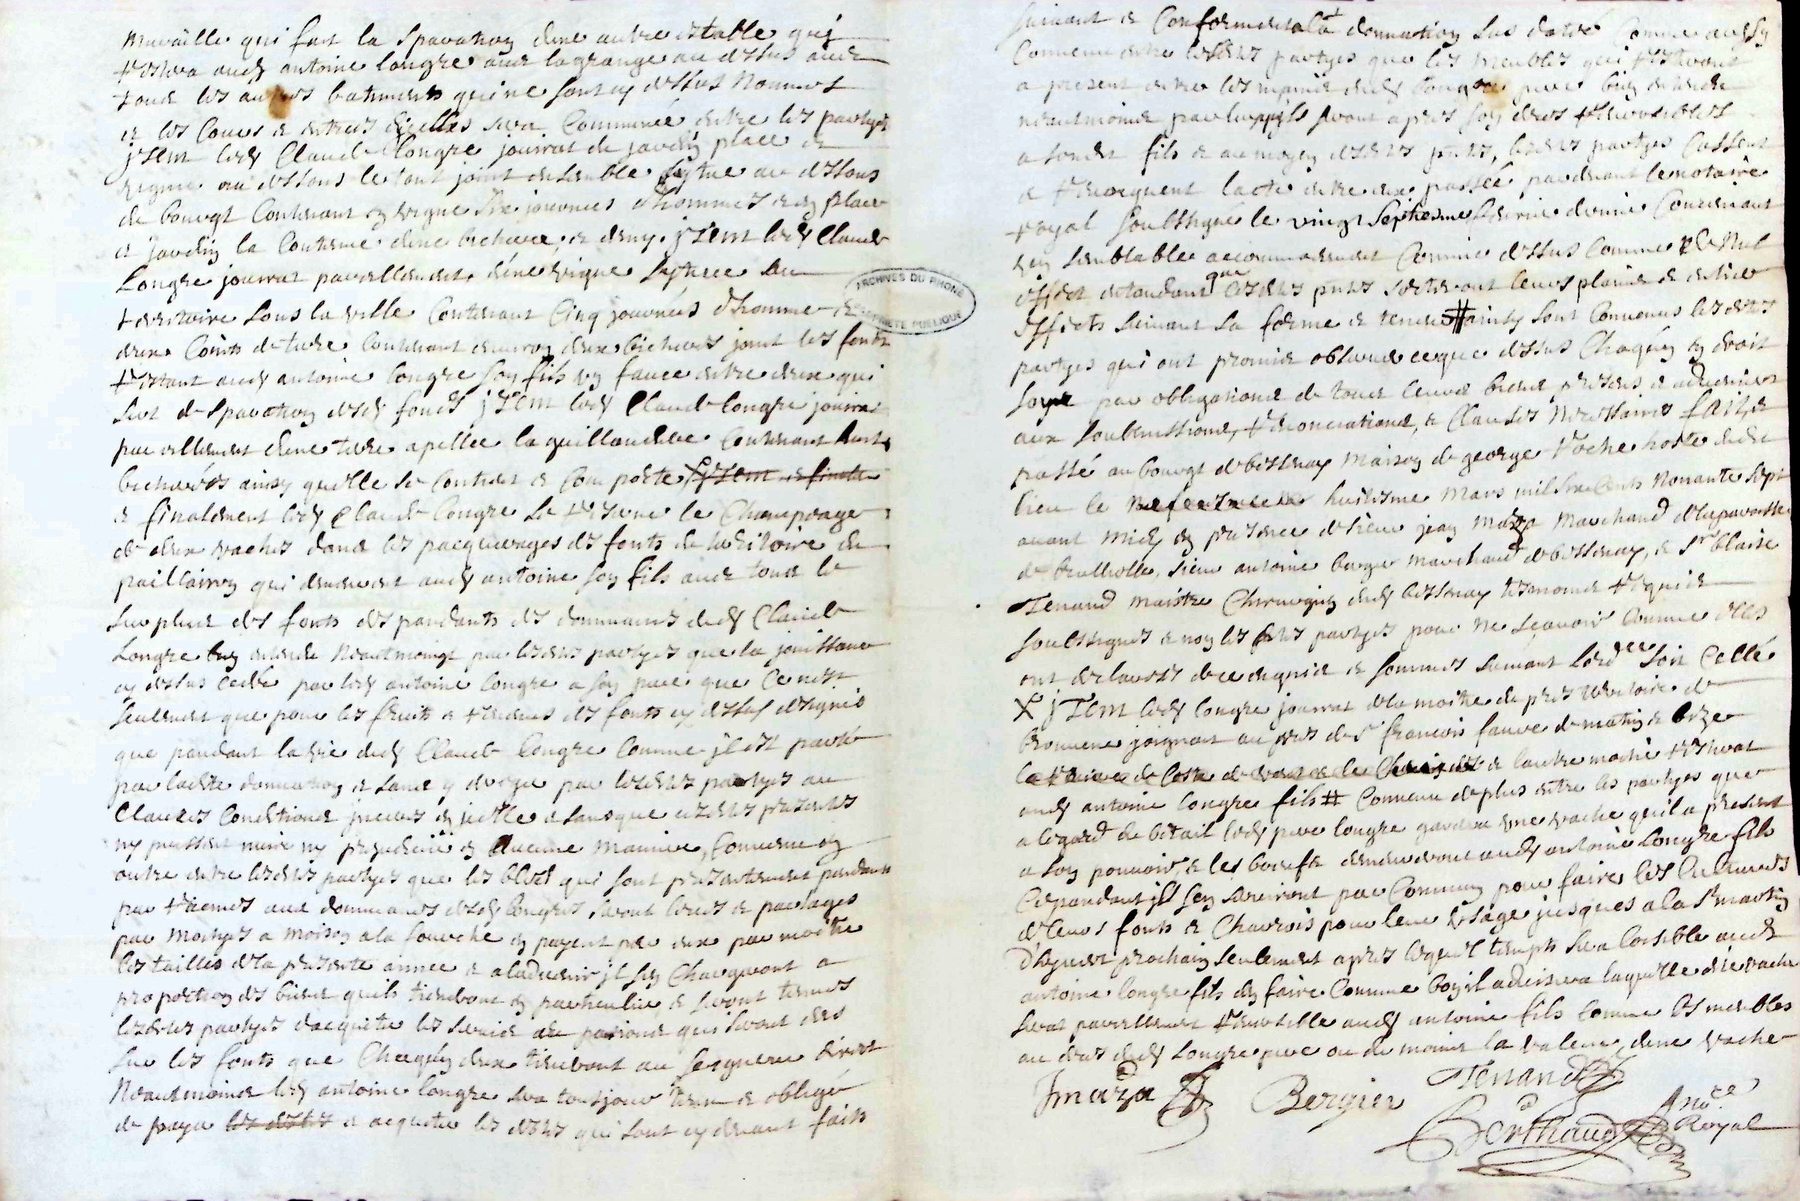 muraille qui fait la separation dune autre estable quj
restera audt antoine longre avec la grange au dessus avec
tous les autres batiments qui ne sont cy dessus nommes
et les cours et entrees dicelles sera commune entre les partyes
jtem ledt Claude Longre jouira de jardin place et
vigne au dessous le tout joint ensemble scytue au dessous
de bourgt contenant en vigne journees dhommes et en place
et jardin la contenue dune bichere et demy. jtem ledt Claude
Longre jouira pareillement dune vigne scytuee au
territoire sous la ville contenant cinq journees dhomme et
deux coins de terre contenant environ deux bicherees joint les fonts
restant audt antoine longre son fils en fance entre deux qui
sert de separation desdt fonds jtem ledt Claude longre jouira
pareillement dune terre apellee la guillaudiere contenant huit
bicherées ainsy quelle se contient et comporte, X jtem et finale
et finalement ledt Claude Longre se reserve le champeage
de deux vaches dans les pacquerages des fonts de teritoire de
paillairey qui demeurent audt antoine son fils avec tout le
surplus des fonts despandants des dommaines dudt Claude
Longre bien entendu neantmoingt par lesdits partyes que la jouissance
cy dessus ceddee par ledt antoine longre a son pere que ce nest
seulement que pour les fruits et revenus des fonts cy dessus designés
que pandant la vie dudt Claude Longre comme jl est porté
par ladite donnation et sans y deroger par lesdits partyes au
clauzes conditions jnserees en jcelle et sans que cesdits presentes
ny puissent nuire ny prejudicier en aucune maniere, convenu en
outre entre lesdits partyes que les bleds qui sont presentement pendants
par racines aux dommaines desdt longres seront levés et partages
par moityes a moison a la souche en payent par eux par moitie
les tailles de la presente annee et a ladvenir jl sen chargeront a
proportion des biens quils tiendront en particulier et seront tenues
lesdits partyes dacquitter les servis et pancions qui seront deus
sur les fonts que chacquns deux tiendront au seigneurs directs
Neantmoins ledt antoine longre sera tousjour tenu et obligé
de payer les dettes et acquitter les dettes qui sont cy devant faits
suivant et conformement a la donnation sus datée comme aussy
convenu entre lesdits partyes que les meubles qui resteront
a present entre les mains dudt longre pere bien entendu
neantmoins par luy quils seront apres son deces reversibles
a sondit fils et au moyen desdits presentes, lesdits partyes cassent
et revocquent lacte entre eux passée pardevant le notaire
royal soubssigné le vingt septiesme fevrier dernier concernant
un semblable accommodement comme dessus comme de nul
effet entandant que cesdits presentes sortiront leurs plains et entier
effects suivant sa forme et teneur # ainsy sont convenus lesdits
partyes qui ont promis observer ce que dessus chaquun en droit
soy par obligations de tous leurs biens presents et advenir
aux soubmissions, renonciations, et clauses necessaires fait et
passé au bourgt de bessenay maison de george roche hoste dudit
lieu le huitiesme mars mil six cents nonante sept
avant midy en presence de sieur jean mazza marchand de la paroisse
de brullioles, sieur antoine bergier marchand de bessenay, et sr blaise
Tenand maistre chirurgien dudt bessenay tesmoins requis
soubssignes et non lesdits partyes pour ne sçavoir comme elles
ont declarees de ce enquis et sommes suivant lordce soit cellé
X jtem ledt longre jouira de la moitie de pres teritoire de
bonnene joignant au pres de sr francois faure de matin et bize
la riviere de Coste de et lautre moitie restera
audt antoine longre fils # convenu de plus entre les partyes que
a legard de bétail ledt pere longre gardera une vache quil a presént
a son pouvoir, et les boeufs demeureront audt antoine Longre fils
cepandant jls sen serviront par commun pour faire les cultures
de leurs fonts et charrois pour leur usage jusques a la st martin
dhyvert prochain seulement apres lequel temps sera loisible audt
antoine longre fils den faire comme bon jl advisera laquelle dite vache
sera pareillement reversible audt antoine fils comme les meubles
au deces dudt Longre pere ou du moins la valeur dune vache
Jmaza Bergier Tenand
Berthaud Nore Royal
ARCHIVES DU RHONE
PROPRIETE PUBLIQUE